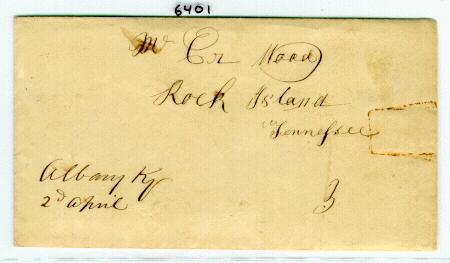 6401
Mr Cr Wood
Rock Island
Tennessee
Albany Ky
2d April
3